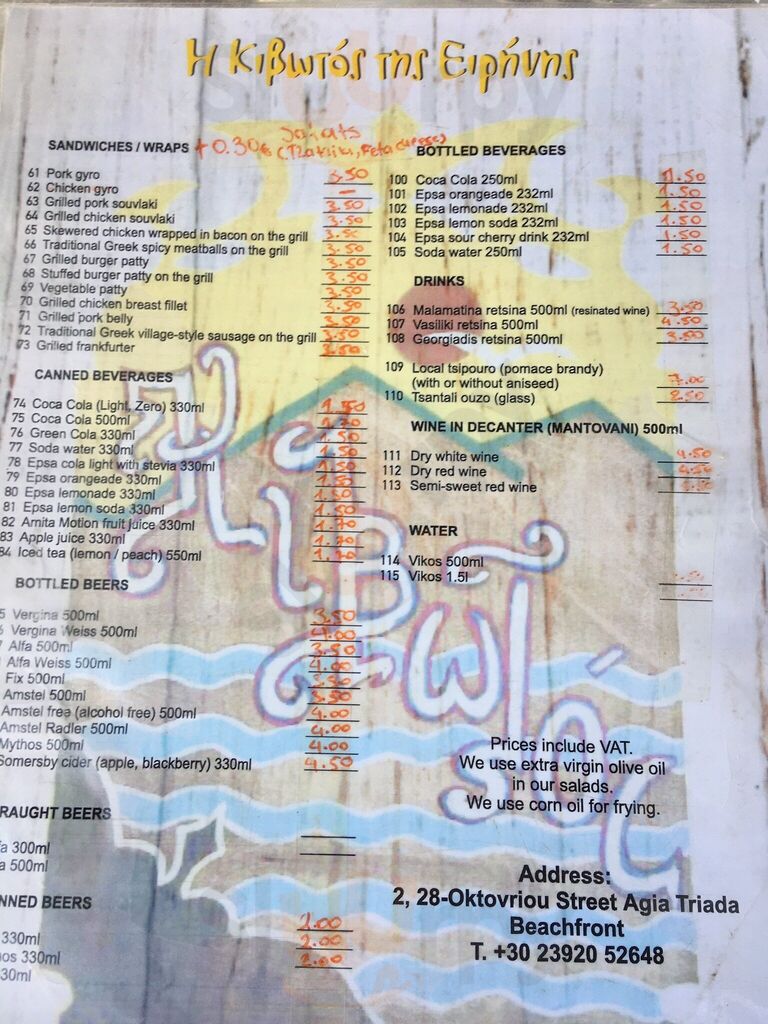 Η Κιβωτός της Ειρήνης
SANDWICHES / WRAPS + 0.30€ Salats
(Tzatziki, Feta cheese)
61 Pork gyro 3.50
62 Chicken gyro —
63 Grilled pork souvlaki 3.50
64 Grilled chicken souvlaki 3.50
65 Skewered chicken wrapped in bacon on the grill 3.50
66 Traditional Greek spicy meatballs on the grill 3.50
67 Grilled burger patty 3.50
68 Stuffed burger patty on the grill 3.50
69 Vegetable patty 3.50
70 Grilled chicken breast fillet 3.50
71 Grilled pork belly 3.50
72 Traditional Greek village-style sausage on the grill 3.50
73 Grilled frankfurter 3.50
CANNED BEVERAGES
74 Coca Cola (Light, Zero) 330ml 1.50
75 Coca Cola 500ml 1.70
76 Green Cola 330ml 1.50
77 Soda water 330ml 1.50
78 Epsa cola light with stevia 330ml 1.50
79 Epsa orangeade 330ml 1.50
80 Epsa lemonade 330ml 1.50
81 Epsa lemon soda 330ml 1.50
82 Amita Motion fruit juice 330ml 1.70
83 Apple juice 330ml 1.70
84 Iced tea (lemon / peach) 550ml 1.70
BOTTLED BEERS
5 Vergina 500ml 3.50
Vergina Weiss 500ml 4.00
Alfa 500ml 3.50
Alfa Weiss 500ml 4.00
Fix 500ml 3.50
Amstel 500ml 3.50
Amstel free (alcohol free) 500ml 4.00
Amstel Radler 500ml 4.00
Mythos 500ml 4.00
Somersby cider (apple, blackberry) 330ml 4.50
RAUGHT BEERS
fa 300ml
a 500ml
NNED BEERS
330ml 2.00
os 330ml 2.00
30ml 2.00
BOTTLED BEVERAGES
100 Coca Cola 250ml 1.50
101 Epsa orangeade 232ml 1.50
102 Epsa lemonade 232ml 1.50
103 Epsa lemon soda 232ml 1.50
104 Epsa sour cherry drink 232ml 1.50
105 Soda water 250ml 1.50
DRINKS
106 Malamatina retsina 500ml (resinated wine) 3.50
107 Vasiliki retsina 500ml 4.50
108 Georgiadis retsina 500ml 3.50
109 Local tsipouro (pomace brandy)
(with or without aniseed) 7.00
110 Tsantali ouzo (glass) 2.50
WINE IN DECANTER (MANTOVANI) 500ml
111 Dry white wine 4.50
112 Dry red wine 4.50
113 Semi-sweet red wine
WATER
114 Vikos 500ml
115 Vikos 1.5l
Η Κιβωτός
Prices include VAT.
We use extra virgin olive oil
in our salads.
We use corn oil for frying.
Address:
2, 28-Oktovriou Street Agia Triada
Beachfront
T. +30 23920 52648